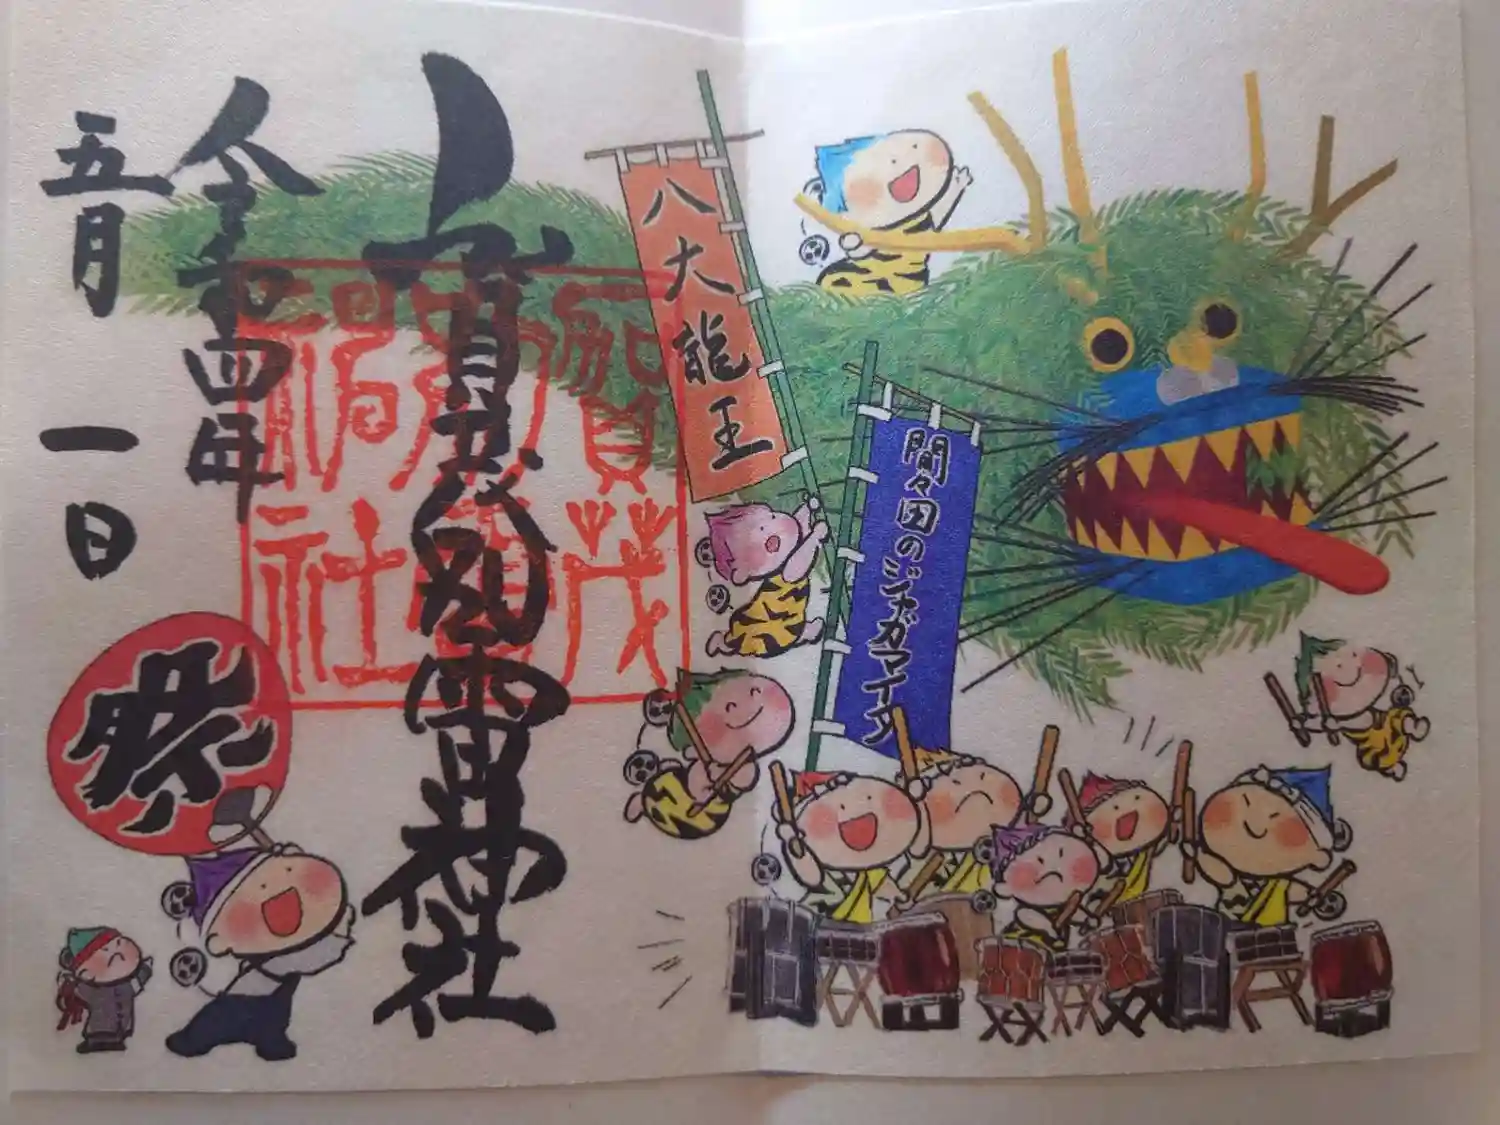 八大龍王
間々田のジャガマイタ
賀茂別雷神社
賀茂
別雷
神社
令和四年
五月一日
祭